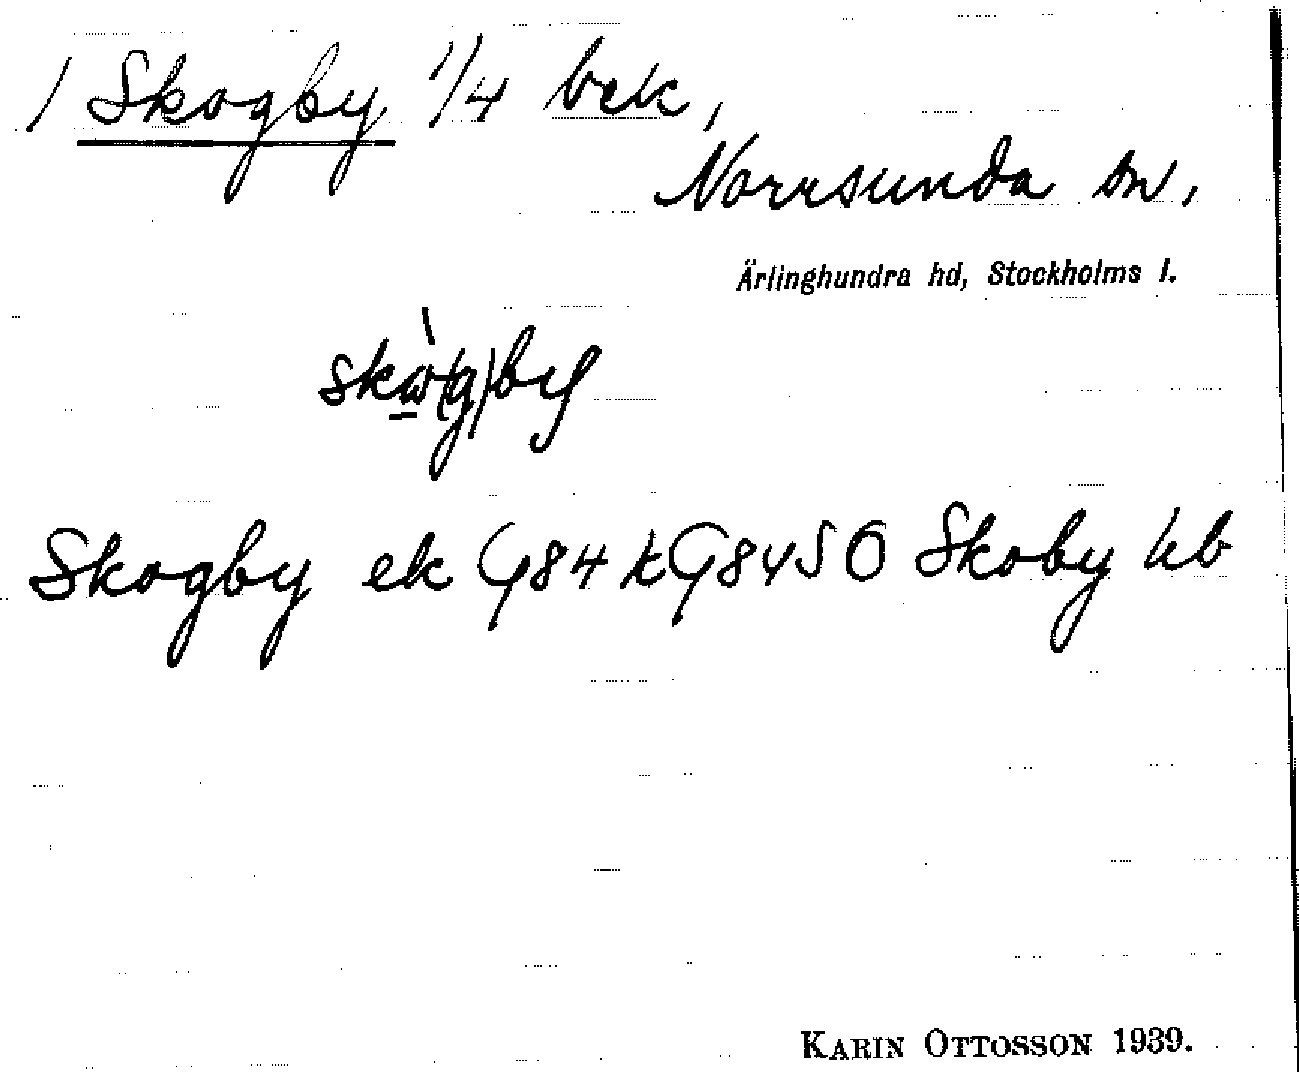 1 Skogby 1/4 bek,
Norrsunda sn,
Ärlinghundra hd, Stockholms l.
skὼ(g)by
Skogby ek G84 kG8450 Skoby hb
KARIN OTTOSSON 1939.